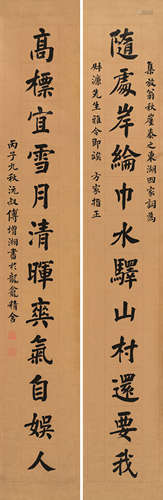 集放翁秋崖秦之東湖四家詞為
隨處岸綸巾水驛山村還要我
溎先生雅令即誨 方家指正
高標宜雪月清暉爽氣自娛人
丙子九秋沅叔傅增湘書於龍龕精舍